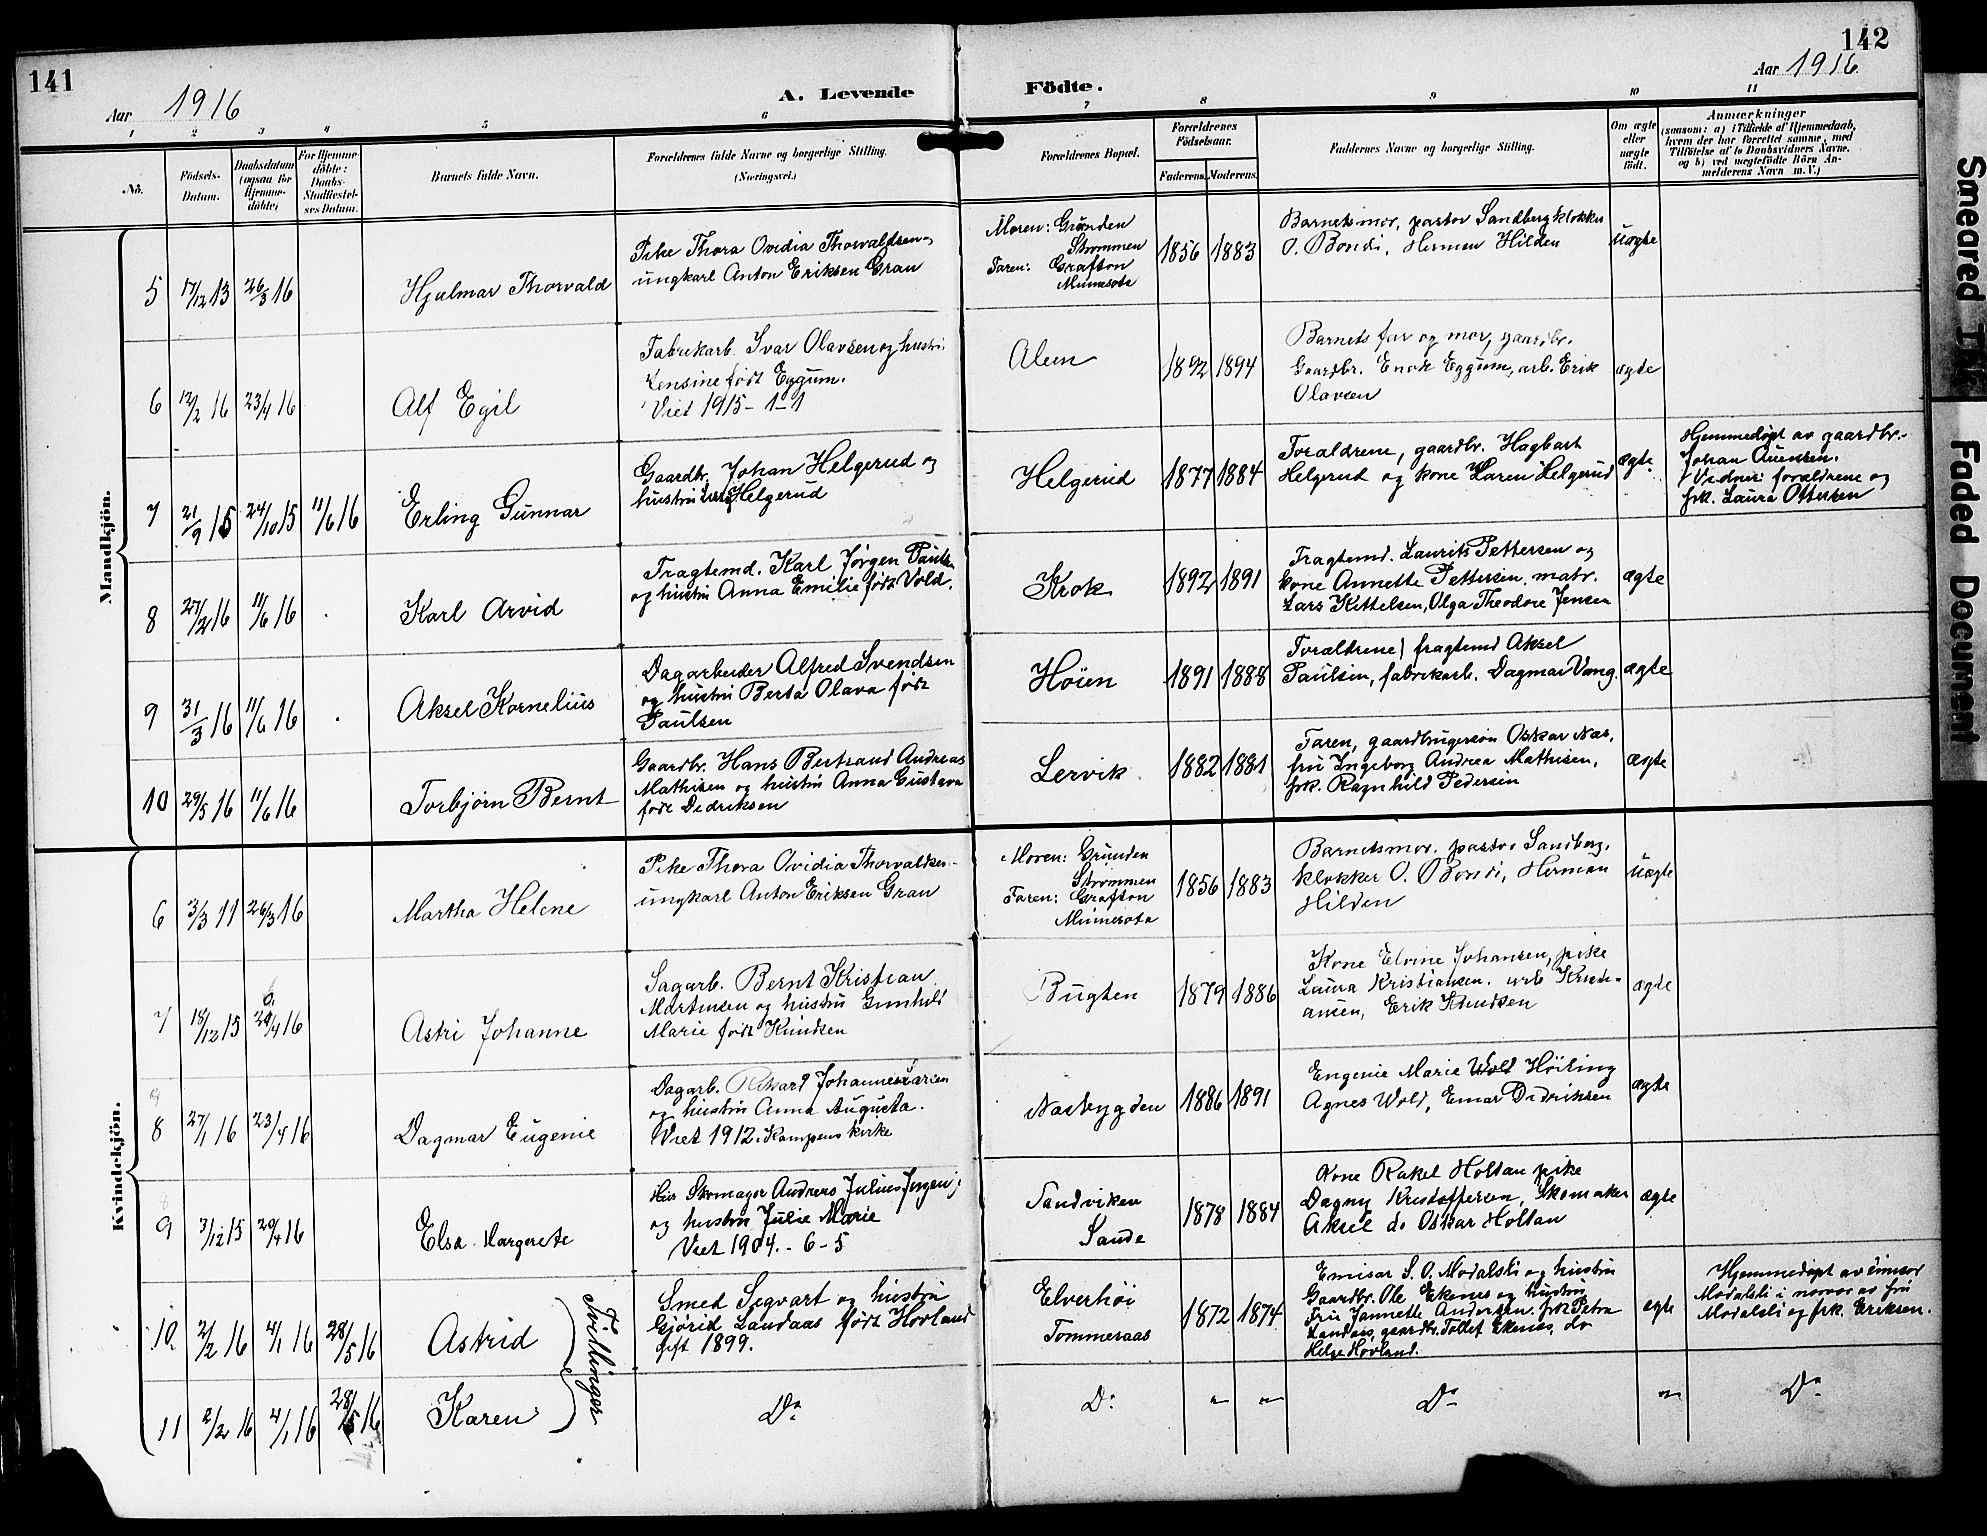 141
142
Aar 1916
A. Levende
Födte.
Aar 1916
1 2 3 4 5 6 7 8 9 10 11
No.
Födsels-
Datum.
Daabsdatum
(ogsaa for
Hjemme-
döbte)
For Hjemme-
döbte:
Daabs-
Stadfæstel-
ses Datum.
Barnets fulde Navn.
Forældrenes fulde Navne og borgerlige Stilling.
(Næringsvei.)
Forældrenes Bopæl.
Forældrenes
Födselsaar.
Faderens. Moderens.
Faddernes Navne og borgerlige Stilling.
Om ægte
eller
uægte
födt.
Anmærkninger
(saasom: a) i Tilfælde af Hjemmedaab,
hvem der har forrettet samme, med
Tilföielse af to Daabsvidners Navne,
og b) ved uægtefödte Börn An-
melderens Navn m. V.)
Mandkjön.
5 17/12 13 26/3 16 Hjalmar Thorvald
Pike Thora Ovidia Thorvaldsen-
ungkarl Anton Eriksen Gran
Moren: Grunden
Strømmen
Faren: Grafton
Minnesota
1856 1883
Barnets mor, pastor Sandberg klokker
O. Bondi, Herman Hilden
Uægte
6 12/2 16 23/4 16 Alf Egil
Fabrikarb. Ivar Olavsen og hustru
Jensine født Eggum.
Viet 1915-1-1
Alen
1892 1894
Barnets far og mor, gaardbr.
Gaardbr. Enok Eggum, arb. Erik
Olavsen
ægte
7 21/9 15 24/10 15 11/6 16 Erling Gunnar
Gaardbr. Johan Helgerud og
hustru Helgerud
Helgerud
1877 1884
Forældrene, gaardbr. Hagbart
Helgerud og kone Karen Helgerud
ægte.
Hjemmedøpt av gaardbr.
Johan Auensen.
Vidner: forældrene og
frk. Laura Ottersen
8 27/2 16 11/6 16 Karl Arvid
Fragtemd. Karl Jørgen Paulsen
og hustru Anna Emilie født Vold.
Krok
1892 1891
Fragtemd. Laurits Pettersen og
kone Annette Pettersen, matr.
Lars Kittelsen, Olga Theodore Jensen
ægte
9 31/3 16 11/6 16 Aksel Kornelius
Dagarbeider Alfred Svendsen
og hustru Berta Olava født
Paulsen
Høien
1891 1888
Forældrene, fragtemd Aksel
Paulsen, fabrikarb. Dagmar Vang.
ægte
10 29/5 16 11/6 16 Torbjørn Bernt
Gaardbr. Hans Bertrand Andreas
Mathisen og hustru Anna Gustava
født Dedriksen
Lervik
1882 1881
Faren, gaardbrugersøn Oskar Næs,
fru Ingeborg Andrea Mathisen,
frk. Ragnhild Pedersen
ægte
Kvindekjön.
6 3/3 11 26/3 16 Martha Helene
Pike Thora Ovidia Thorvaldsen-
ungkarl Anton Eriksen Gran
Moren: Grunden
Strømmen
Faren: Grafton
Minnesota
1856 1883
Barnets mor, pastor Sandberg,
klokker O. Bondi, Herman
Hilden
Uægte
7 18/12 15 /4 16 Astri Johanne
Sagarb. Bernt Kristian
Martinsen og hustru Gunhild
Marie født Knudsen
Bugten
1879 1886
Kone Elvine Johansen, pike
Laura Kristiansen, arb Kristi-
ansen, Erik Knudsen
ægte
8 27/1 16 23/4 16 Dagmar Eugenie
Dagarb. Rikard Johannes Larsen
og hustru Anna Augusta.
Viet 1912 i Kampens kirke
Nesbygden
1886 1891
Engenie Marie Wold Høiling
Agnes Wold, Einar Didriksen
ægte
9 3/12 15 29/4 16 Elsa Margrete
Skomager Andreas Julius Jensen
og hustru Julie Marie
Viet 1904.-6-5
Sandviken
Sande
1878 1884
Kone Rakel Holtan pike
Dagny Kristoffersen, Skomaker
Aksel do Oskar Holtan
ægte
10 2/2 16 4/1 16 28/5 16 Astrid
Tvillinger
Smed Segvart og hustru
Gjørid Landaas født Hovland
gift 1899.
Elverhøi
Tommeraas
1872 1874
Emisær S. O. Modalsli og hustru
Gaardbr. Ole Ekenes og hustru
Fru Jannette Andersen. frk Petra
Landaas, gaardbr. Tollef Ekenes, do
Helge Hovland.
ægte
Hjemmedøpt av emisær
Modalsli i nærvær av fru
Modalsli og frk. Eriksen.
11 2/2 16 4/1 16 28/5 16 Karen
Do
Do
" "
Do
"
Do
Smeared Ink
Faded Document